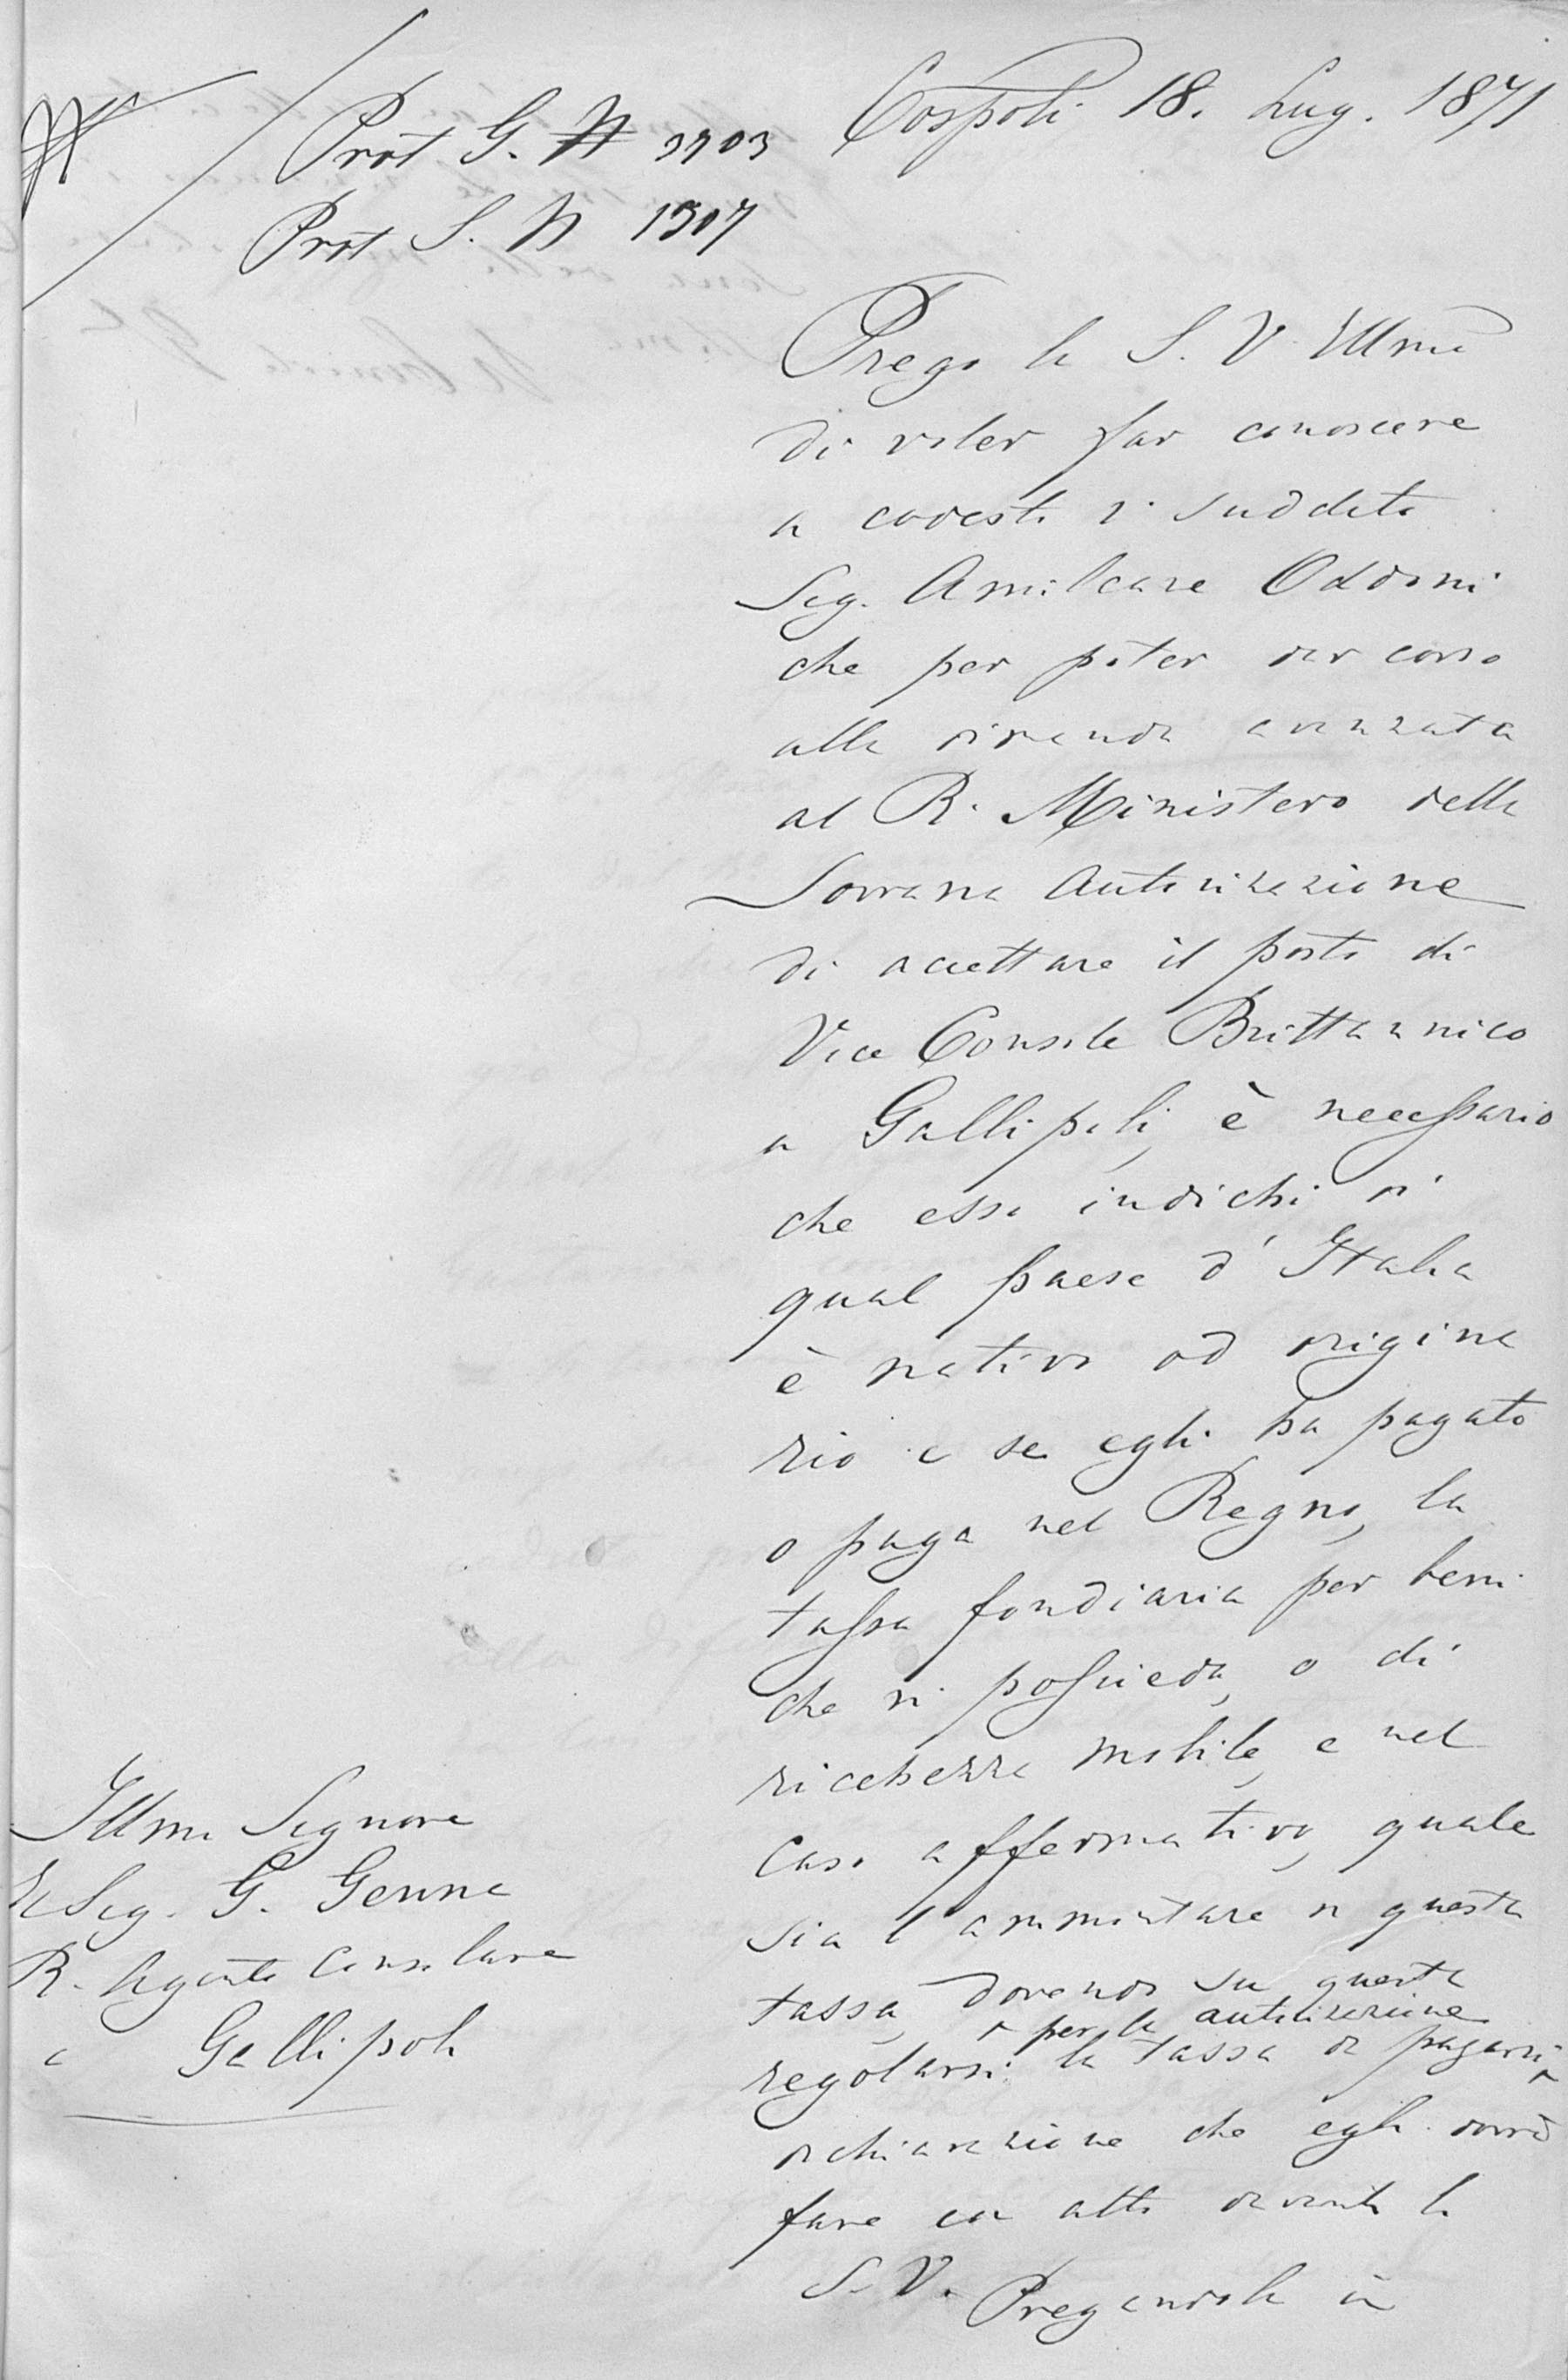 Prot G. N 3703
Prot S. N 1307
Cospoli 18. Lug. 1871
Prego la S. V. Illma
di voler far conoscere
a codesto r. suddito
Sig. Amilcare Oddoni
che per poter dar corso
alla dimanda avanzata
al R. Ministero della
Sovrana Autorizazione
di accettare il posto di
Vice Console Brittannico
a Gallipoli, è necessario
che esso indichi di
qual paese d'Italia
è nativo od origina
rio e se egli ha pagato
o paga nel Regno, la
tassa fondiaria per beni
che vi possieda, o di
ricchezza mobile, e nel
caso affermativo, quale
sia l'ammontare di questa
tassa, dovendo su questa
regolarsi la tassa da pagarsi
per la autorizazione
dichiarazione che egli dovrà
fare con atto davanti la
S. V. Pregandola in
Illmo Signore
Il Sig. G. Genne
R. Agente Consolare
a Gallipoli